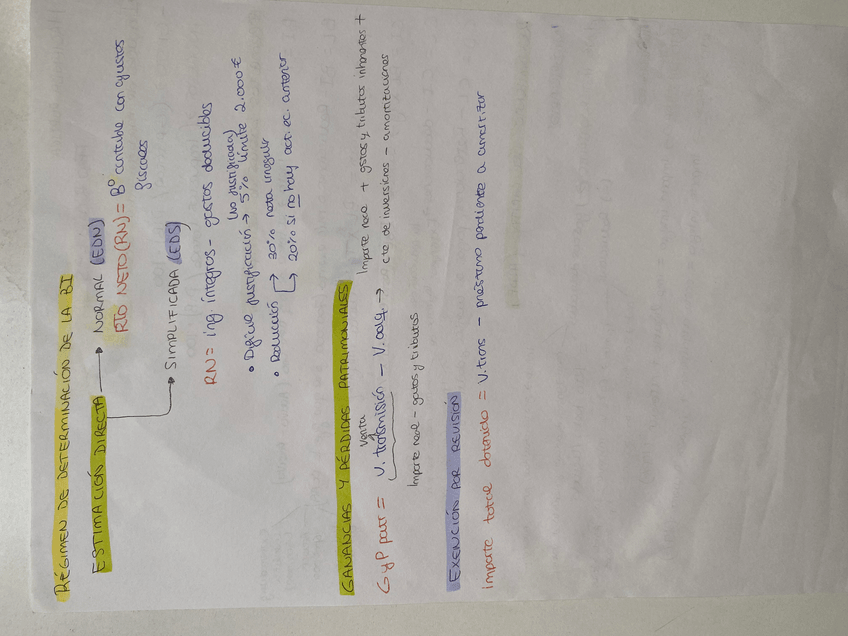 RÉGIMEN DE DETERMINACIÓN DE LA BI
ESTIMACIÓN DIRECTA → NORMAL (EDN)
RTO NETO (RN) = Bº contable con ajustes
fiscales
→ SIMPLIFICADA (EDS)
RN = ing íntegros - gastos deducibles
(no justificada)
• Difícil justificación → 5% límite 2.000€
• Reducción → 30% nota irregular
→ 20% si no hay act. ec. anterior
GANANCIAS Y PÉRDIDAS PATRIMONIALES
Importe real + gstos y tributos inherentes +
Venta
G y P patr = V. transmisión - V. adq. → cte de inversiones - amortizaciones
Importe real - gastos y tributos
EXENCIÓN POR REVISIÓN
Importe total obtenido = V. trans - préstamo pendiente a amortizar